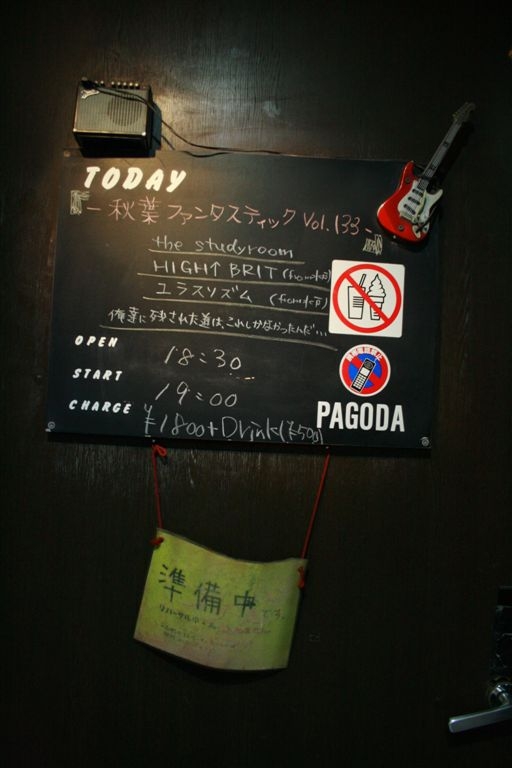 TODAY
- 秋葉 ファンタスティック Vol.133 -
the studyroom
HIGH↑BRIT (from水戸)
ユラスリズム (from水戸)
俺達に残された道は、これしかなかったんだ…
OPEN 18:30
START 19:00
CHARGE ¥1800+Drink(¥500)
PAGODA
準備中です。
リハーサル中